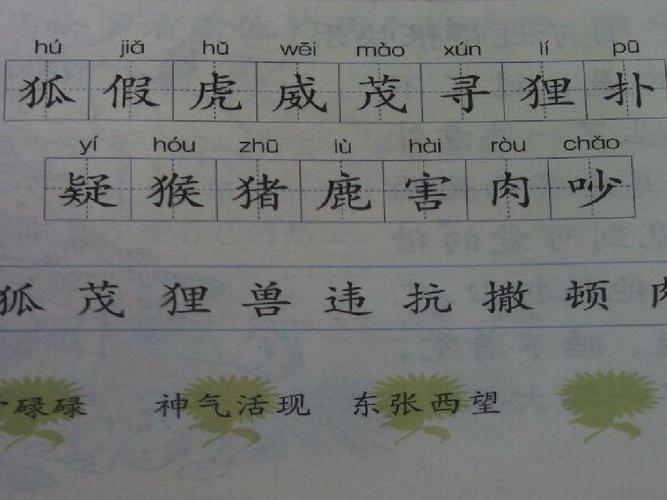 hú jiǎ hǔ wēi mào xún lí pū
狐 假 虎 威 茂 寻 狸 扑
yí hóu zhū lù hài ròu chǎo
疑 猴 猪 鹿 害 肉 吵
狐 茂 狸 兽 违 抗 撒 顿
碌碌 神气活现 东张西望